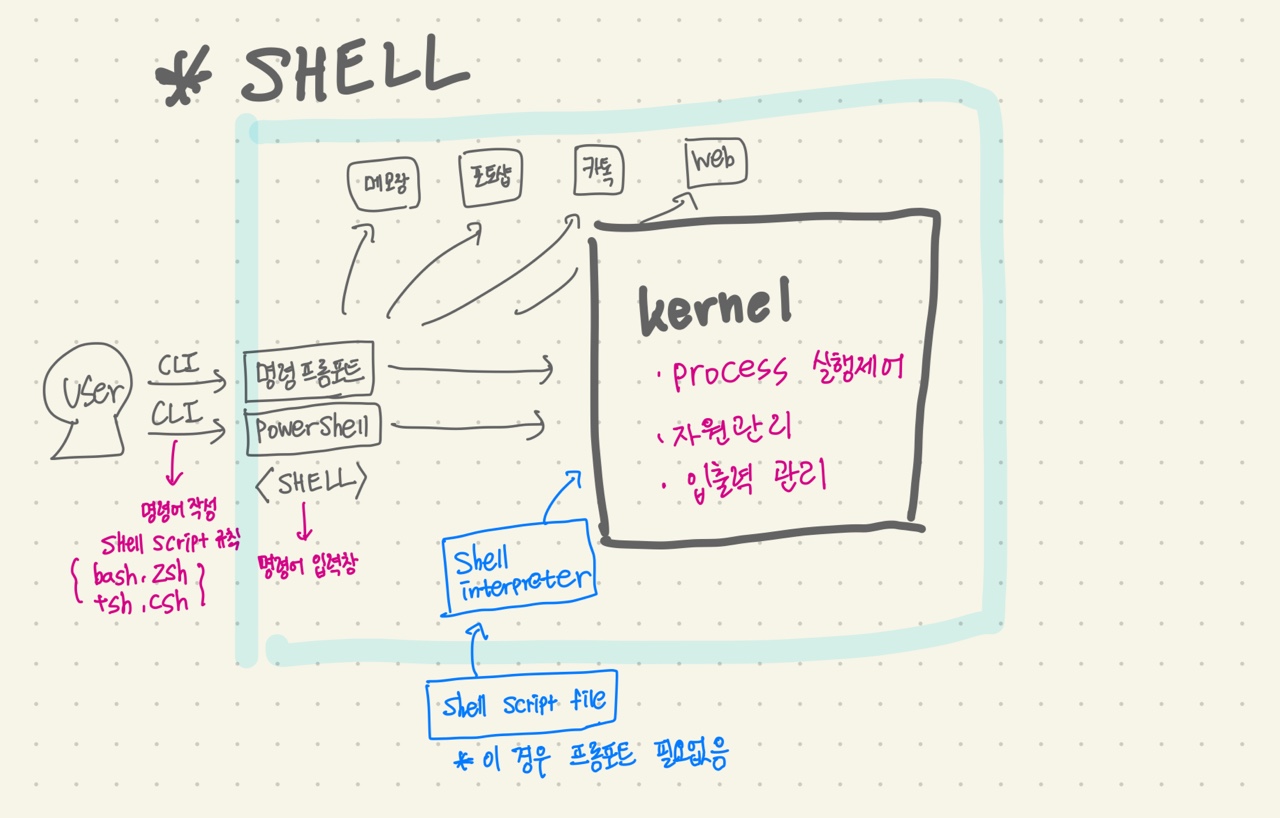 * SHELL
메모장
포토샵
카톡
Web
kernel
· process 실행제어
· 자원관리
· 입출력 관리
User
CLI
CLI
명령프롬포트
PowerShell
<SHELL>
명령어 작성
Shell Script 규칙
{ bash, zsh }
tsh, csh
명령어 입력창
Shell
interpreter
Shell Script file
* 이 경우 프롬포트 필요없음